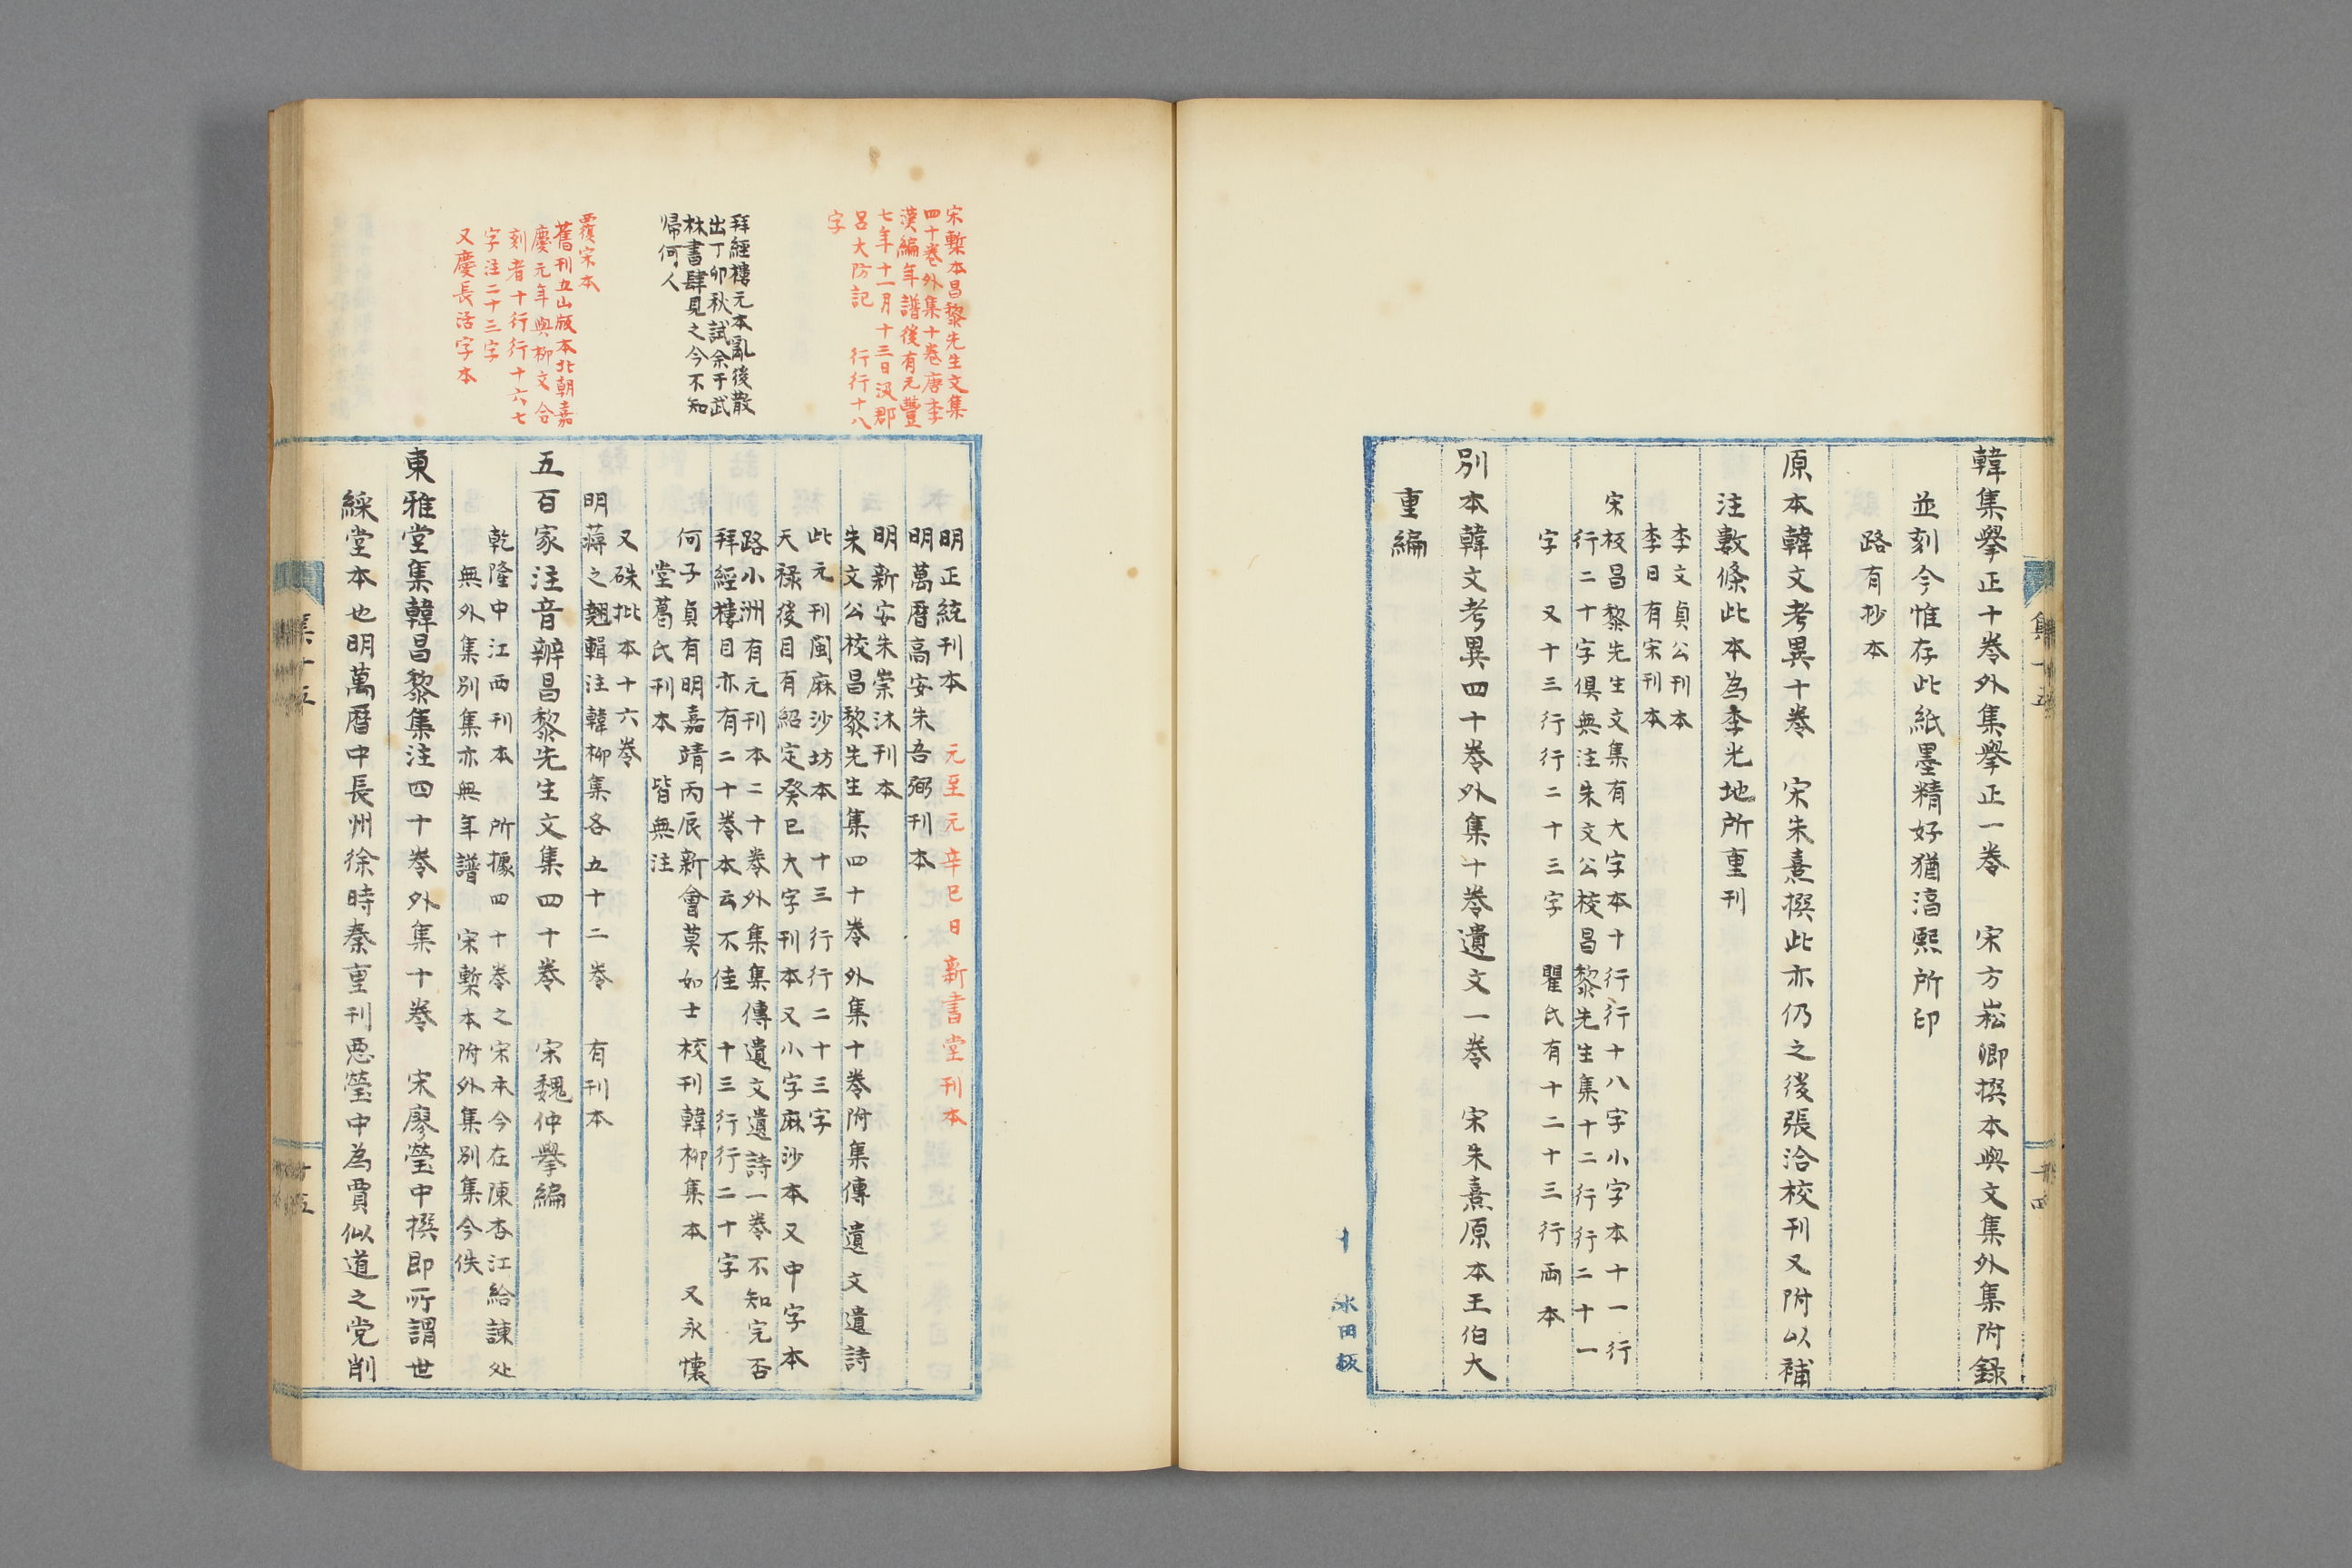 韓集擧正十卷外集擧正一卷　宋方崧卿撰本與文集外集附錄
並刻今惟存此紙墨精好猶淳熙所印
路有抄本
原本韓文考異十卷　宋朱熹撰此亦仍之後張洽校刊又附以補
注數條此本為李光地所重刊
李文貞公刊本
李日有宋刊本
宋板昌黎先生文集有大字本十行行十八字小字本十一行
行二十字俱無注朱文公校昌黎先生集十二行行二十一
字又十三行行二十三字　瞿氏有十二十三行兩本
別本韓文考異四十卷外集十卷遺文一卷　宋朱熹原本王伯大
重編
集十五
十四
冰田板
宋槧本昌黎先生文集
四十卷外集十卷唐李
漢編年譜後有元豐
七年十一月十三日汲郡
呂大防記　行行十八
字
拜經樓元本亂後散
出丁卯秋試余于武
林書肆見之今不知
歸何人
覆宋本
舊刊五山版本北朝嘉
慶元年與柳文合
刻者十行行十六七
字注二十三字
又慶長活字本
明正統刊本　元至元辛巳日新書堂刊本
明萬曆高安朱吾弼刊本
明新安朱崇沐刊本
朱文公校昌黎先生集四十卷外集十卷附集傳遺文遺詩
此元刊閩麻沙坊本　十三行行二十三字
天祿後目有紹定癸巳大字刊本又小字麻沙本又中字本
路小洲有元刊本二十卷外集集傳遺文遺詩一卷不知完否
拜經樓目亦有二十卷本云不佳　十三行行二十字
何子貞有明嘉靖丙辰新會莫如士校刊韓柳集本　又永懷
堂葛氏刊本　皆無注
又硃批本十六卷
明蔣之翹輯注韓柳集各五十二卷　有刊本
五百家注音辨昌黎先生文集四十卷　宋魏仲擧編
乾隆中江西刊本　所據四十卷之宋本今在陳杏江給諫处
無外集別集亦無年譜　宋槧本附外集別集今佚
東雅堂集韓昌黎集注四十卷外集十卷　宋廖瑩中撰即所謂世
綵堂本也明萬曆中長州徐時泰重刊惡瑩中為賈似道之党削
集十五
十五